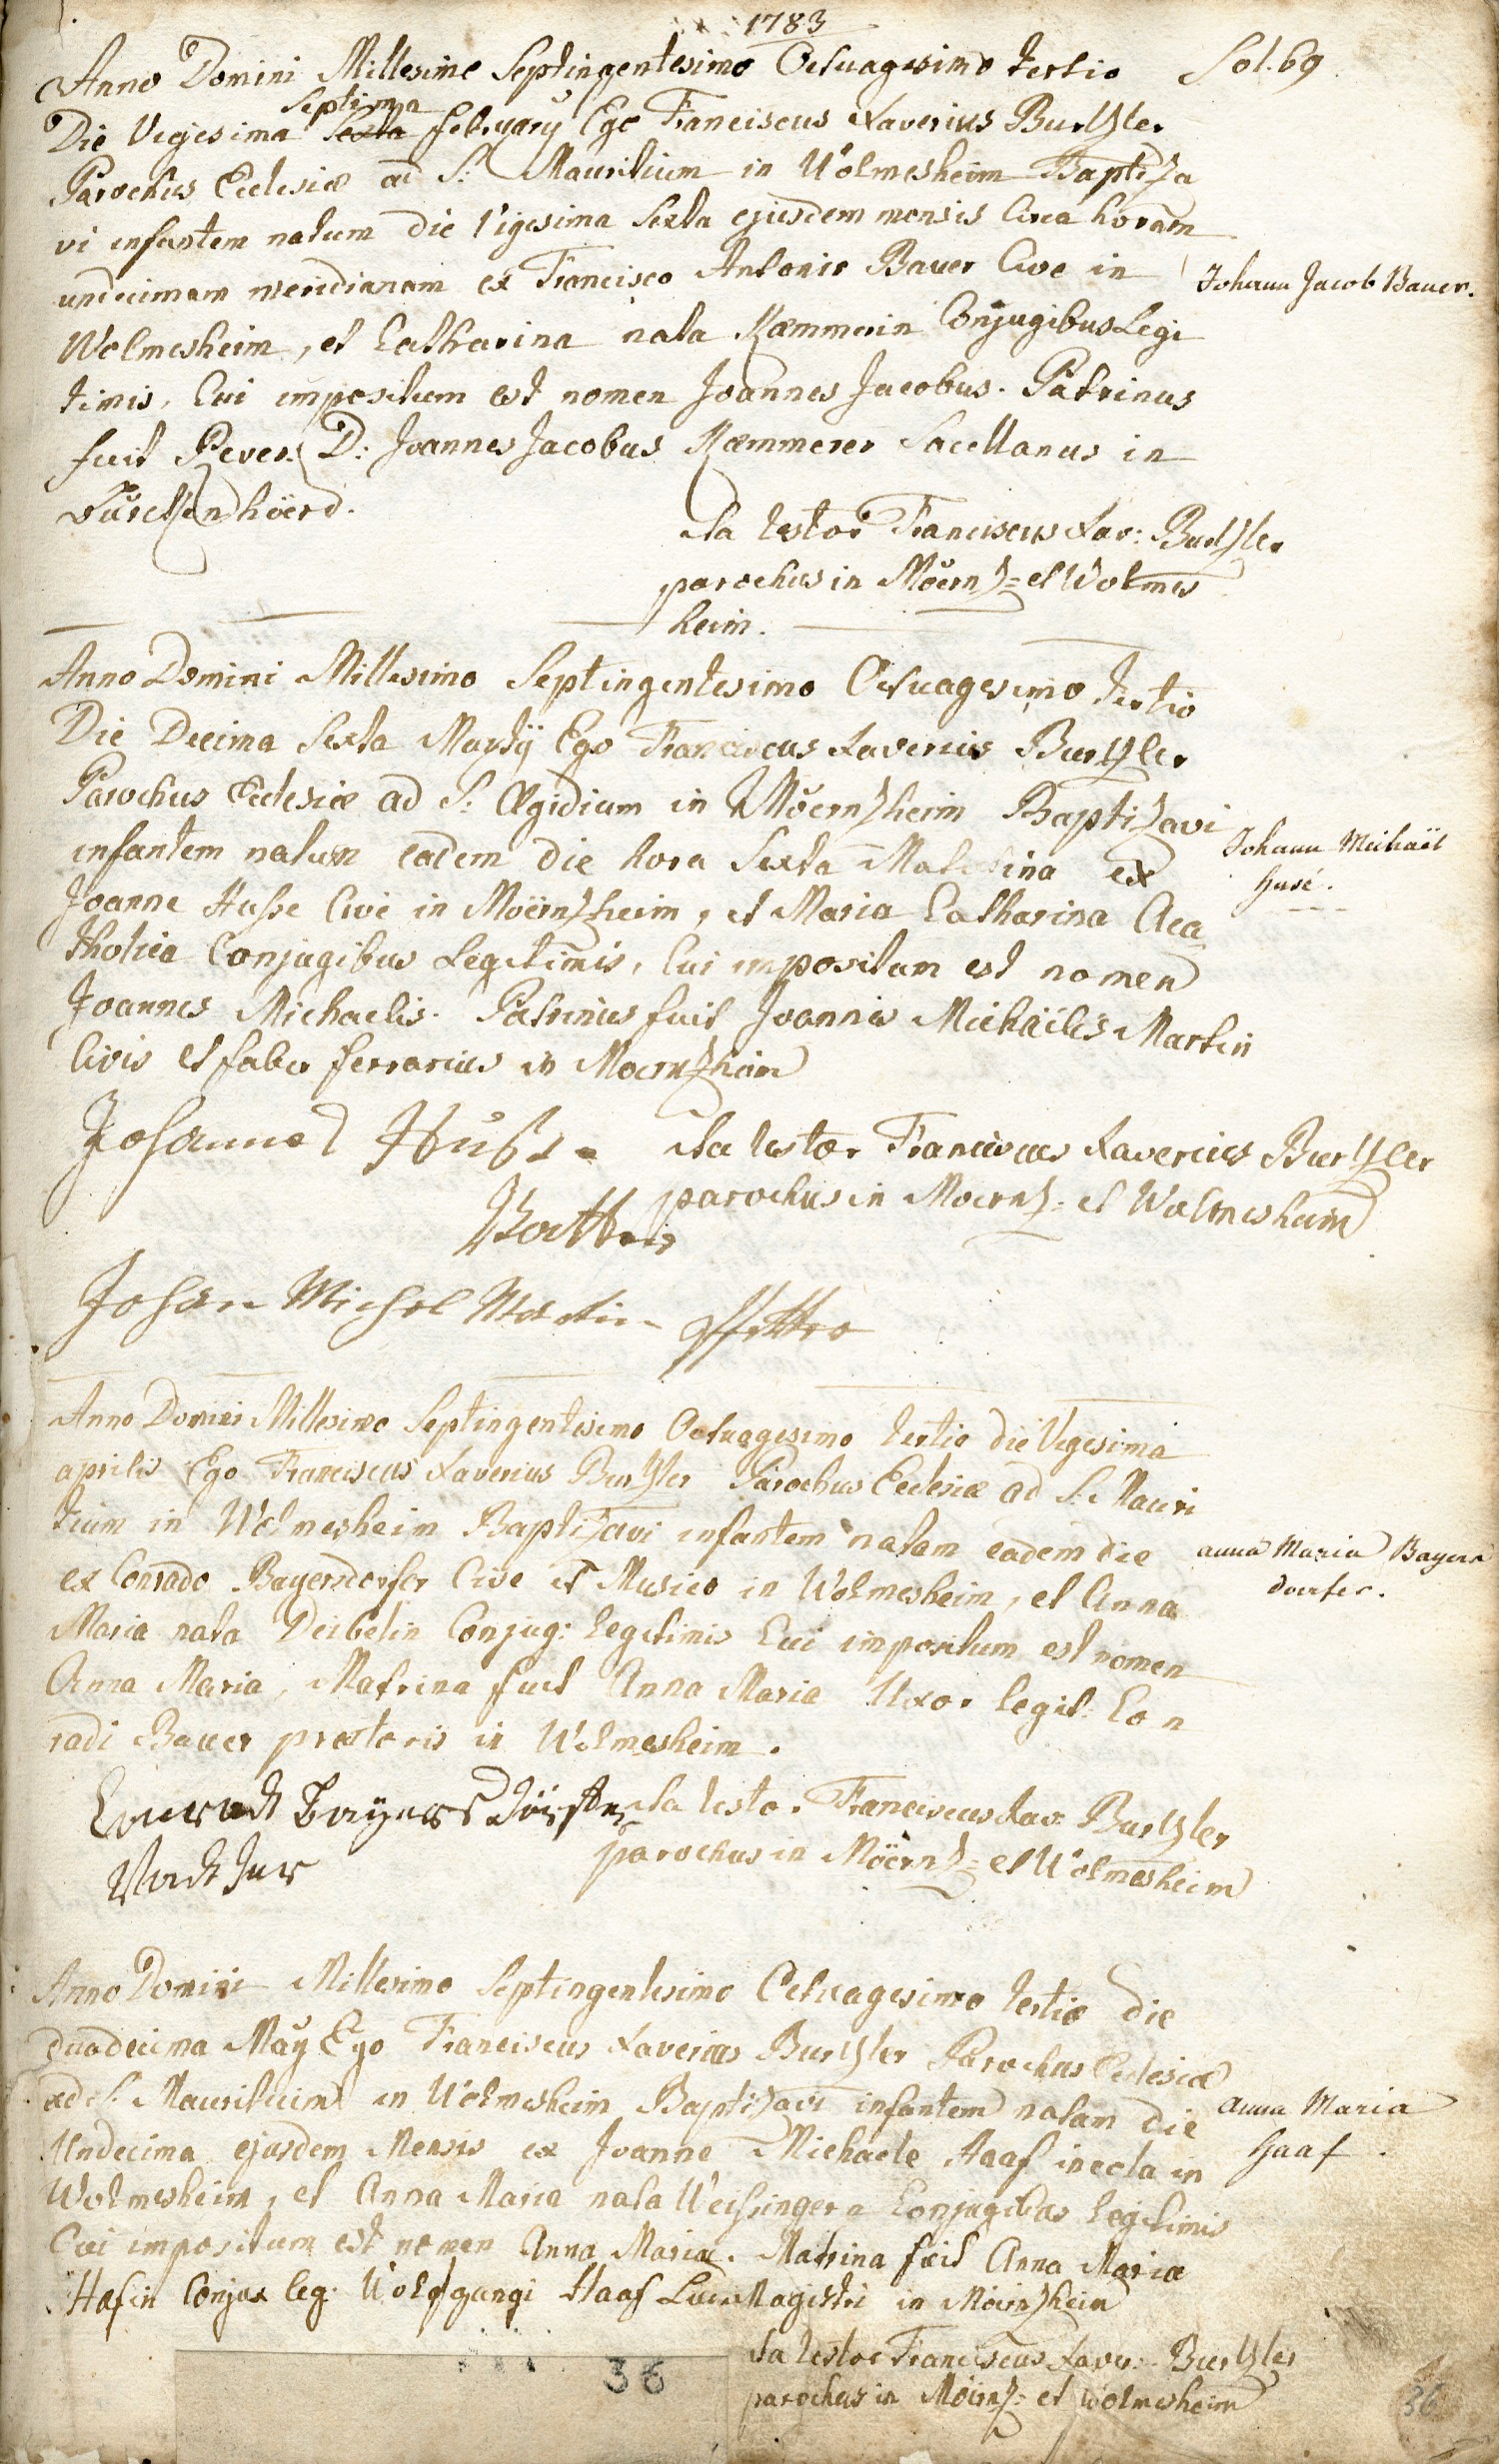 1783
Anno Domini Millesimo Septingentesimo Octuagesimo tertio Fol. 69
Septima
Die Vigesima Sexta february Ego Franciscus Xaverius Burtzler
Parochus Ecclesiæ ad S: Mauritium in Wolmesheim Baptiza
vi infantem natum die Vigesima Sexta ejusdem mensis Circa horam
undecimam meridianam ex Francisco Antonio Bauer Cive in
Johann Jacob Bauer.
Wolmesheim, et Catharina nata Kæmmerin Conjugibus Legi
timis, Cui impositum est nomen Joannes Jacobus. Patrinus
fuit Rever: D: Joannes Jacobus Kæmmerer Sacellanus in
Ita testor Franciscus Xav: Burtzler
parochus in Möerntz= et Wolmes
heim.
Anno Domini Millesimo Septingentesimo Octuagesimo tertio
Die Decima Sexta Martÿ Ego Franciscus Xaverius Burtzler
Parochus Ecclesiæ ad S: Ægidium in Möerntzheim Baptizavi
infantem natum eadem die hora Sexta Matutina ex
Johann Michaël
Husé.
Joanne Husse Cive in Moërntzheim, et Maria Catharina Aca
tholica Conjugibus Legitimis, Cui impositum est nomen
Joannes Michaelis. Patrinus fuit Joannis Michaëlis Martin
Civis et faber ferrarius in Moerntzheim
Johannes Huße Ita testor Franciscus Xaverius Burtzler
parochus in Moerntz= et Wolmesheim
Johan Michel Martin
Anno Domini Millesimo Septingentesimo Octuagesimo tertio die Vigesima
aprilis Ego Franciscus Xaverius Burtzler Parochus Ecclesiæ ad S: Mauri
tium in Wolmesheim Baptizavi infantem natam eadem die
anna Maria Bayers
doerfer.
ex Conrado Bayersdorfer Cive et Musico in Wolmesheim, et Anna
Maria nata Deibelin Conjug: legitimis Cui impositum est nomen
Anna Maria, Matrina fuit Anna Maria Uxor legit: Con
radi Bauer prætoris in Wolmesheim.
Conradt Bayersdörfer Ita testor Franciscus Xav: Burtzler
Vatter parochus in Möerntz= et Wolmesheim
Anno Domini Millesimo Septingentesimo Octuagesimo tertio die
duodecima Maÿ Ego Franciscus Xaverius Burtzler Parochus Ecclesiæ
ad S. Mauritium in Wolmesheim Baptizavi infantem natam die
anna Maria
Haaf.
Undecima ejusdem Mensis ex Joanne Michaele Haaf incola in
Wolmesheim, et Anna Maria nata Weissingera Conjugibus legitimis
Cui impositum est nomen Anna Maria. Matrina fuit Anna Maria
Hafin Conjux leg: Wolfgangi Haaf LudiMagistri in Möerntzheim
Ita testor Franciscus Xaver: Burtzler
parochus in Möerntz= et Wolmesheim
36
36